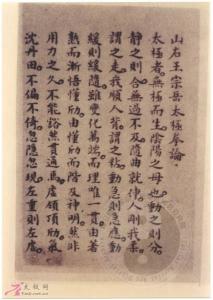 山右王宗岳太極拳論
太極者無極而生陰陽之母也動之則分
静之則合無過不及隨曲就伸人剛我柔
謂之走我順人背謂之黏動急則急應動
緩則緩隨雖變化萬端而理唯一貫由著
熟而漸悟懂勁由懂勁而階及神明然非
用力之久不能豁然貫通焉虛領頂勁氣
沈丹田不偏不倚忽隱忽現左重則左虛